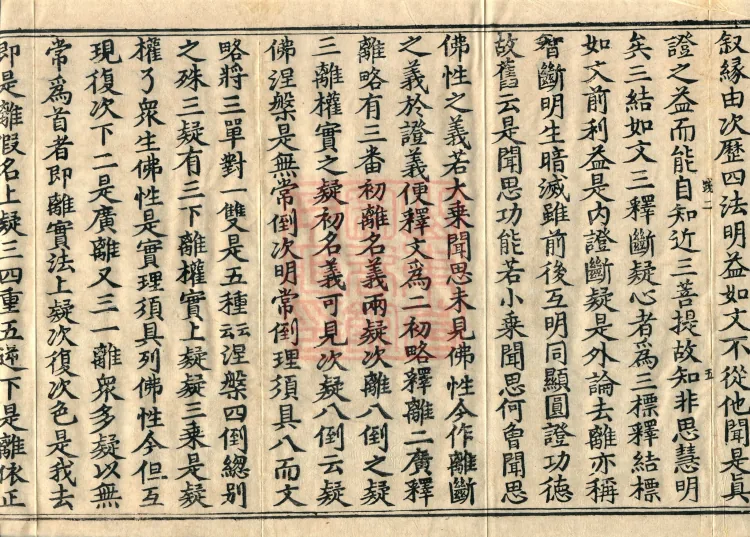 叙緣由次歷四法明益如文不從他聞是眞
證之益而能自知近三菩提故知非思慧明
矣三結如文三釋斷疑心者爲三標釋結標
如文前利益是内證斷疑是外論去離亦稱
智斷明生暗滅雖前後互明同顯圓證功德
故舊云是聞思功能若小乘聞思何曾聞思
佛性之義若大乘聞思未見佛性今作離斷
之義於證義便釋文爲二初略釋離二廣釋
離略有三番初離名義兩疑次離八倒之疑
三離權實之疑初名義可見次疑八倒云疑
佛涅槃是無常倒次明常倒理須具八而文
略將三單對一雙是五種云云涅槃四倒總別
之殊三疑有三下離權實上疑疑三乘是疑
權了衆生佛性是實理須具列佛性今但互
現復次下二是廣離又三一離衆多疑以無
常爲首者即離實法上疑次復次色是我去
即是離假名上疑三四重五逆下是離依正
五